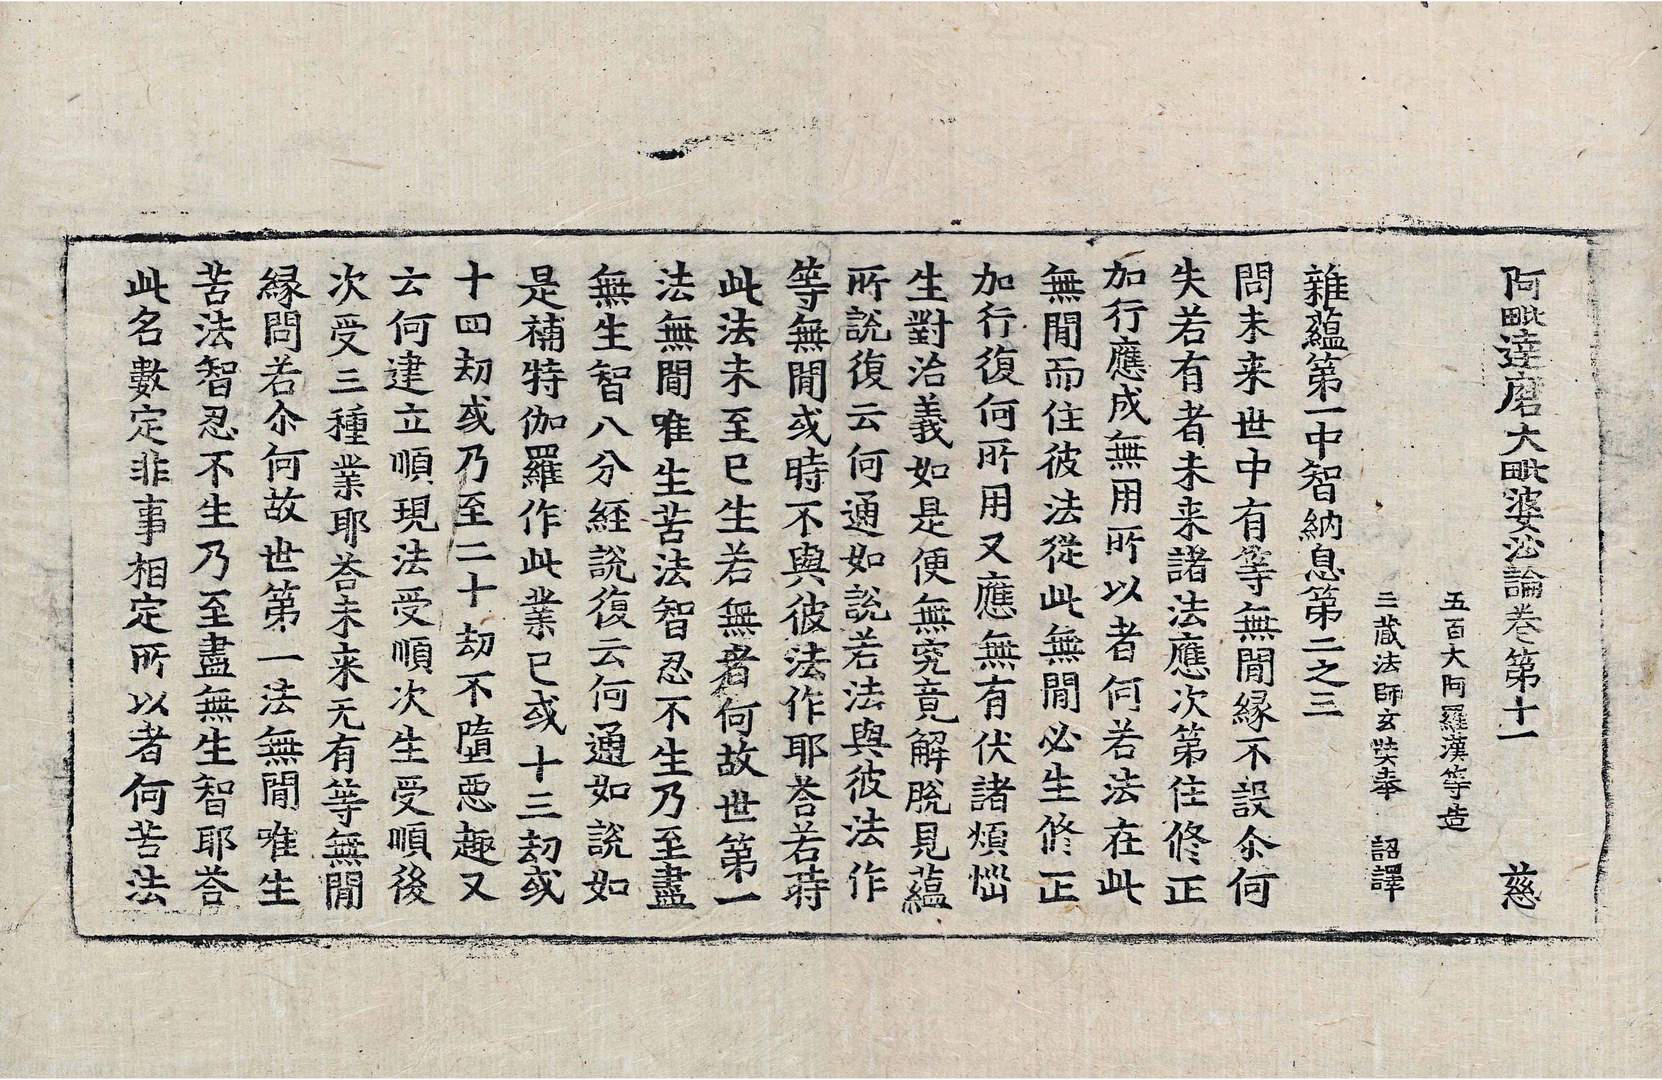 阿毗達磨大毗婆沙論卷第十一 慈
五百大阿羅漢等造
三蔵法師玄奘奉 詔譯
雜蘊第一中智納息第二之三
問未来世中有等無間緣不設尒何
失若有者未来諸法應次第住修正
加行應成無用所以者何若法在此
無間而住彼法從此無間必生修正
加行復何所用又應無有伏諸煩惱
生對治義如是便無究竟解脫見蘊
所說復云何通如說若法與彼法作
等無間或時不與彼法作耶荅若時
此法未至已生若無者何故世第一
法無間唯生苦法智忍不生乃至盡
無生智八分經說復云何通如說如
是補特伽羅作此業已或十三劫或
十四劫或乃至二十劫不墮惡趣又
云何建立順現法受順次生受順後
次受三種業耶荅未来无有等無間
縁問若尒何故世第一法無間唯生
苦法智忍不生乃至盡無生智耶荅
此名數定非事相定所以者何苦法